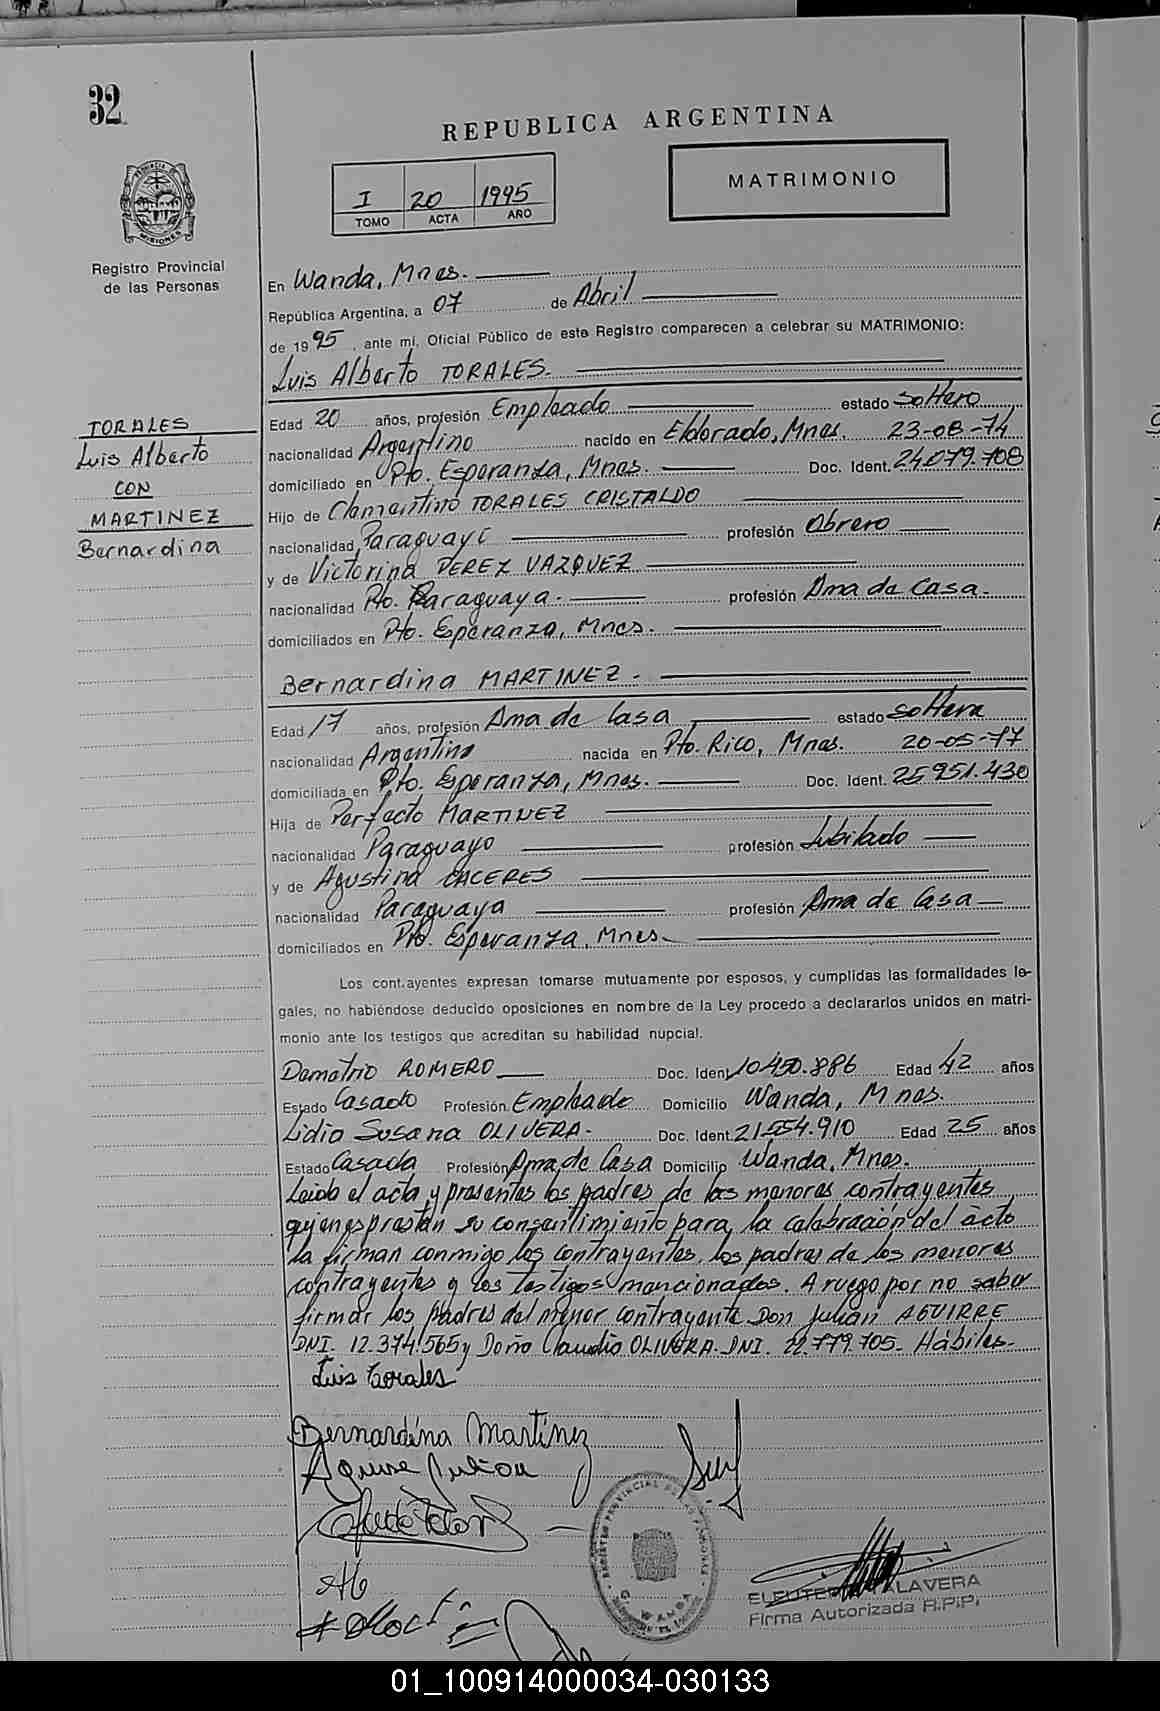 32
REPUBLICA ARGENTINA
I 20 1995
TOMO ACTA AÑO
MATRIMONIO
PROVINCIA DE MISIONES
Registro Provincial
de las Personas
En Wanda, Mnes.
República Argentina, a 07 de Abril
de 1995, ante mí, Oficial Público de este Registro comparecen a celebrar su MATRIMONIO:
Luis Alberto TORALES.
TORALES
Luis Alberto
CON
MARTINEZ
Bernardina
Edad 20 años, profesión Empleado estado soltero
nacionalidad Argentino nacido en Eldorado, Mnes. 23-08-74
domiciliado en Pto. Esperanza, Mnes. Doc. Ident. 24.079.708
Hijo de Clementino TORALES CRISTALDO
nacionalidad Paraguayi profesión Obrero
y de Victorina PEREZ VAZQUEZ
nacionalidad Pto. Paraguaya. profesión Ama de Casa.
domiciliados en Pto. Esperanza, Mnes.
Bernardina MARTINEZ.
Edad 17 años, profesión Ama de Casa estado soltera
nacionalidad Argentina nacida en Pto. Rico, Mnes. 20-05-77
domiciliada en Pto. Esperanza, Mnes. Doc. Ident. 25.951.430
Hija de Perfecto MARTINEZ
nacionalidad Paraguayo profesión Jubilado
y de Agustina CACERES
nacionalidad Paraguaya profesión Ama de Casa
domiciliados en Pto. Esperanza, Mnes.
Los cont.ayentes expresan tomarse mutuamente por esposos, y cumplidas las formalidades le-
gales, no habiéndose deducido oposiciones en nombre de la Ley procedo a declararlos unidos en matri-
monio ante los testigos que acreditan su habilidad nupcial.
Demetrio ROMERO Doc. Ident. 10.450.886 Edad 42 años
Estado Casado Profesión Empleado Domicilio Wanda, Mnes.
Lidia Susana OLIVERA. Doc. Ident. 21.554.910 Edad 25 años
Estado Casada Profesión Ama de Casa Domicilio Wanda, Mnes.
Leida el acta y presentes los padres de los menores contrayentes
quienes prestan su consentimiento para la celebración del acto
la firman conmigo los contrayentes, los padres de los menores
contrayentes y los testigos mencionados. A ruego por no saber
firmar los padres del menor contrayente Don Julián AGUIRRE
DNI. 12.374.565 y Doña Claudia OLIVERA. DNI. 22.779.705. Hábiles.
Luis Torales
Bernardina Martinez
Aguirre Julian
REGISTRO PROVINCIAL DE LAS PERSONAS
WANDA
TALAVERA
Firma Autorizada R.P.P.
01_100914000034-030133